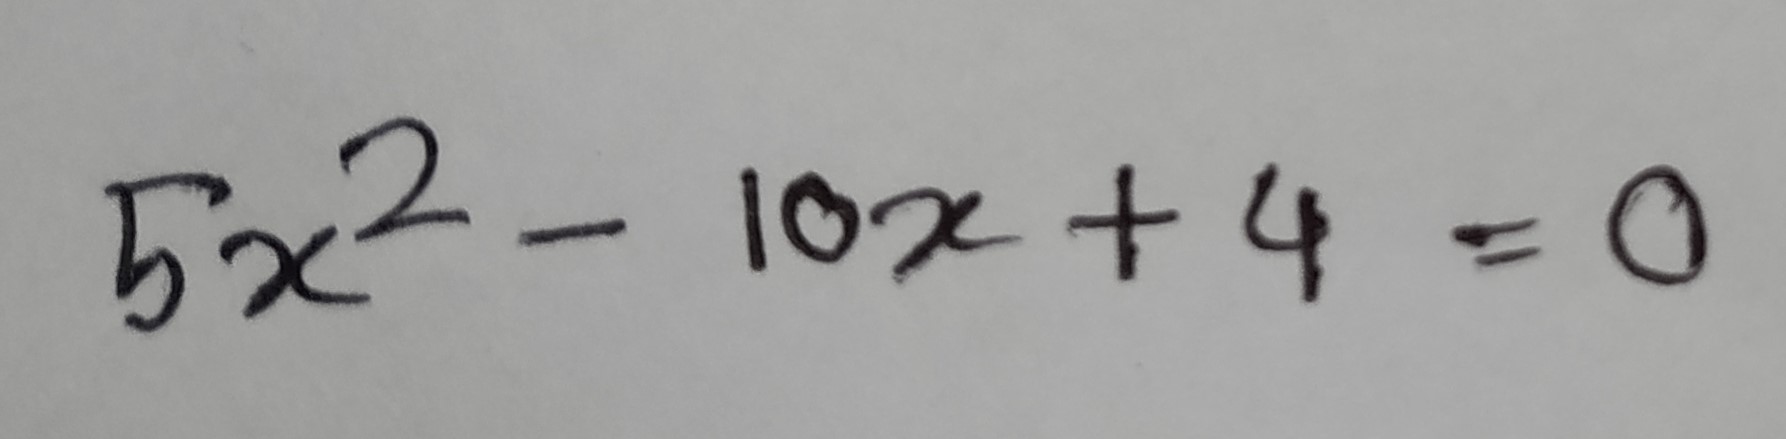 5x² - 10x + 4 = 0